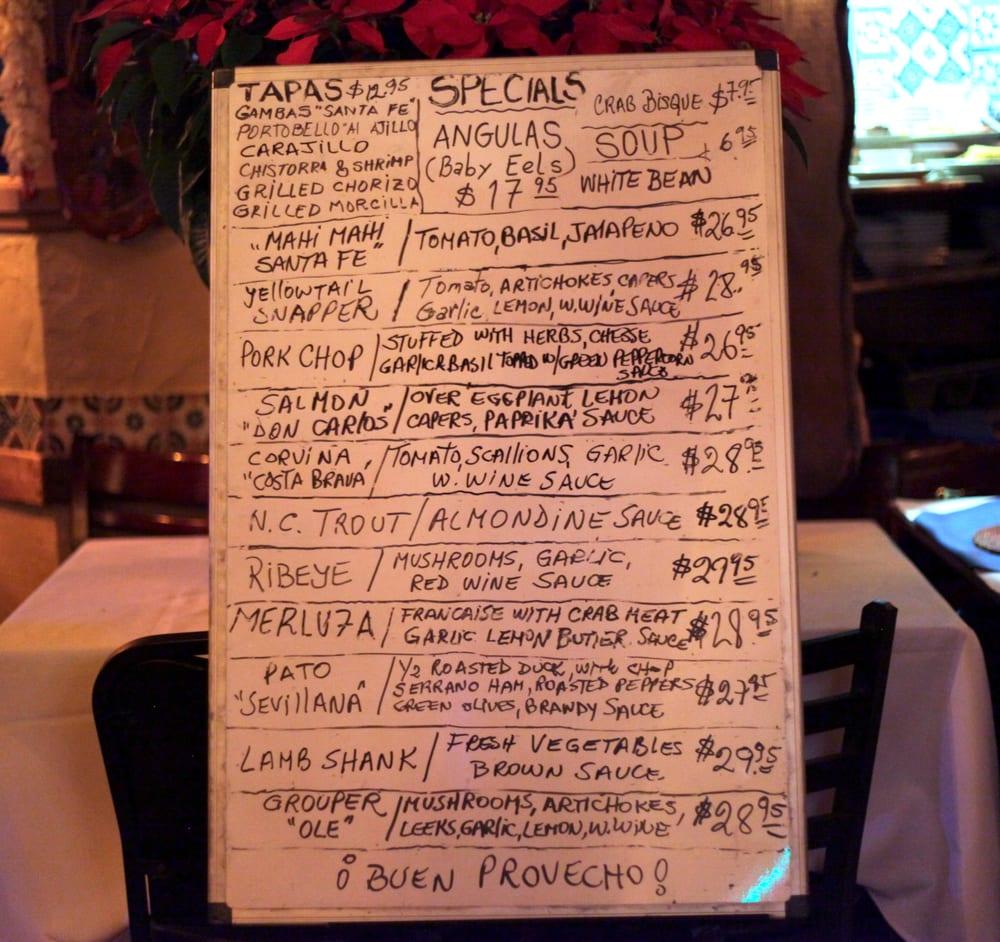 TAPAS $12.95
GAMBAS "SANTA FE"
PORTOBELLO "Al AJILLO
CARAJILLO
CHISTORRA & SHRIMP
GRILLED CHORIZO
GRILLED MORCILLA
SPECIALS
ANGULAS
(Baby Eels)
$17.95
CRAB BISQUE $7.95
SOUP 6.95
WHITE BEAN
"MAHI MAHI / TOMATO, BASIL, JALAPENO $26.95
SANTA FE"
YELLOWTAIL / Tomato, ARTICHOKES, CAPERS $28.95
SNAPPER Garlic LEMON, W.WINE SAUCE
PORK CHOP / STUFFED WITH HERBS, CHEESE $26.95
GARLIC & BASIL TOPPED W/GREEN PEPPERCORN
SAUCE
SALMON / OVER EGGPLANT LEMON $27
"DON CARLOS" CAPERS, PAPRIKA SAUCE
CORVINA / TOMATO, SCALLIONS, GARLIC $28.95
"COSTA BRAVA" W. WINE SAUCE
N.C. TROUT / ALMONDINE SAUCE $28.95
RIBEYE / MUSHROOMS, GARLIC, $29.95
RED WINE SAUCE
MERLUZA / FRANCAISE WITH CRAB MEAT $28.95
GARLIC LEMON BUTTER SAUCE
PATO / 1/2 ROASTED DUCK, WITH CHOP $27.95
"SEVILLANA" SERRANO HAM, ROASTED PEPPERS
GREEN OLIVES, BRANDY SAUCE
LAMB SHANK / FRESH VEGETABLES $29.95
BROWN SAUCE
GROUPER / MUSHROOMS, ARTICHOKES, $28.95
"OLE" LEEKS, GARLIC, LEMON, W.WINE
¡ BUEN PROVECHO !